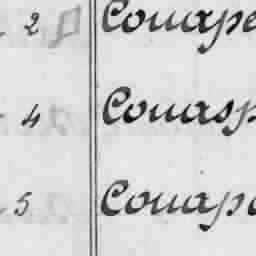 2 Couape
4 Couasp
5 Couapo